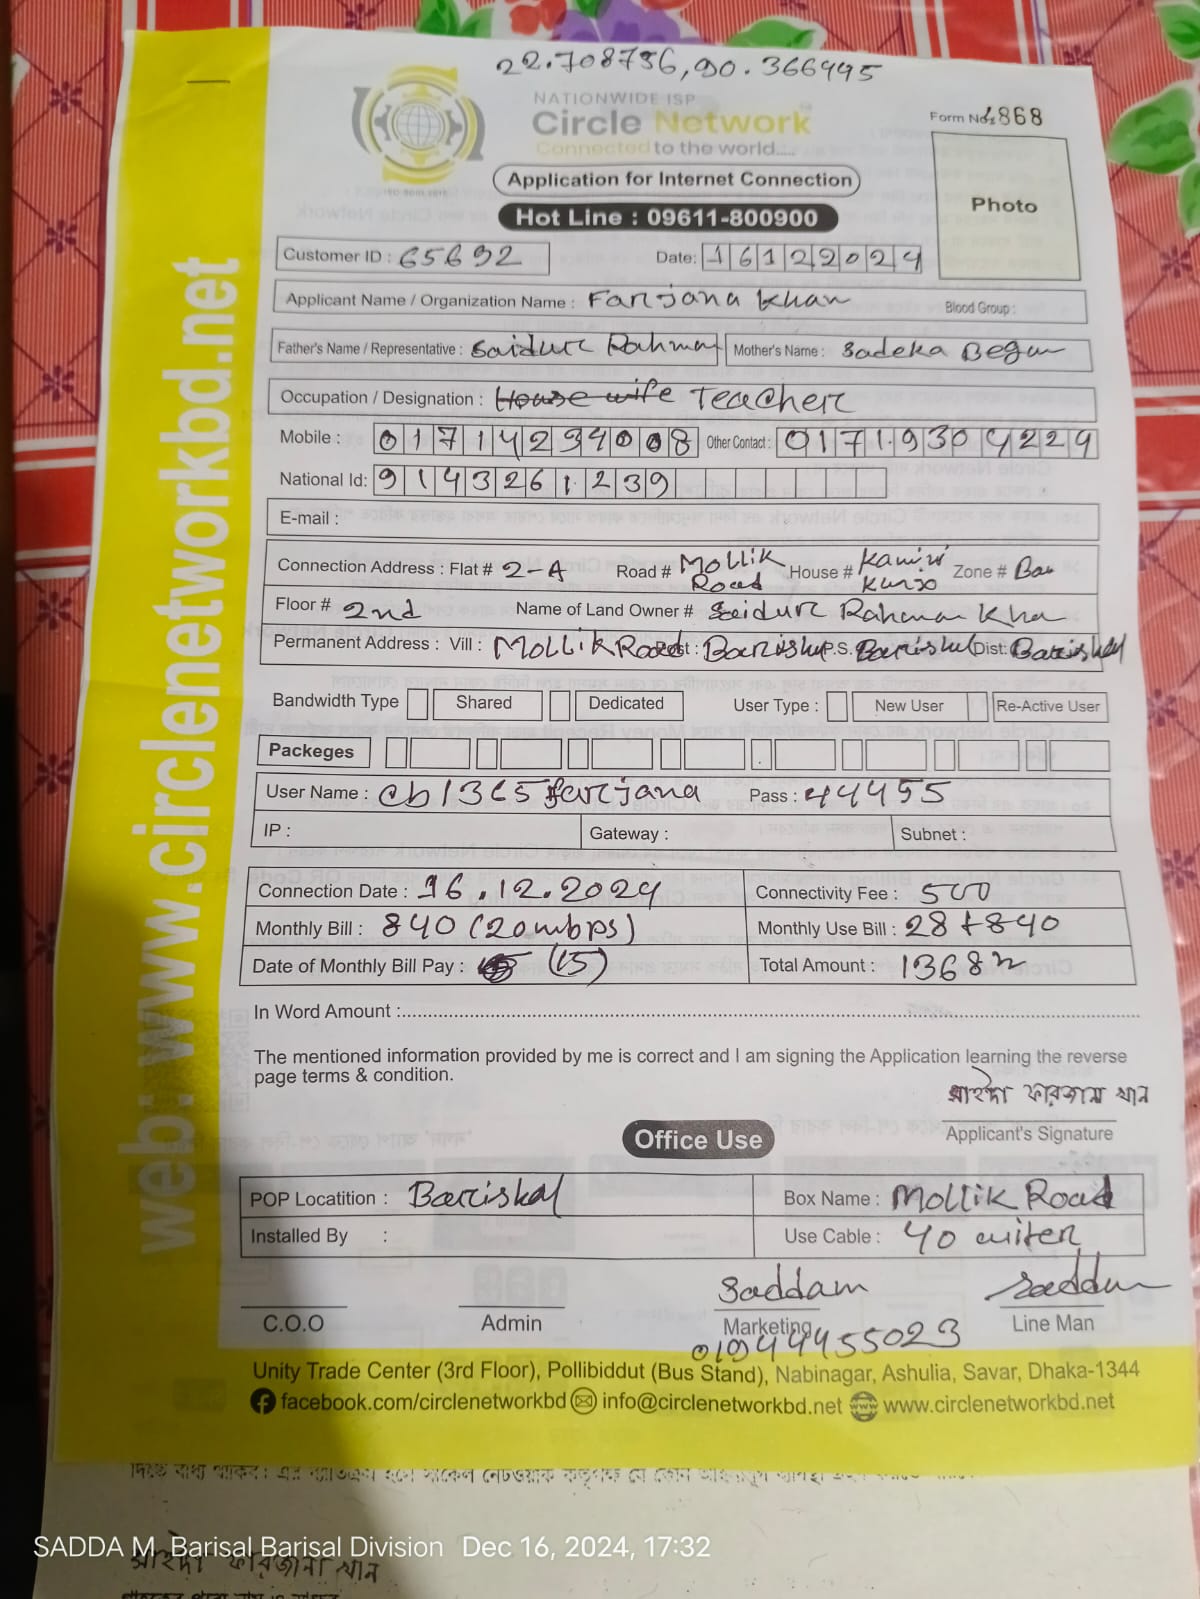 22.708756,90.366445
NATIONWIDE ISP
Circle Network
Connected to the world.....
Form No: 1868
Photo
Application for Internet Connection
Hot Line : 09611-800900
Customer ID : 65692 Date: 16122024
Applicant Name / Organization Name : Farjana Khan Blood Group :
Father's Name / Representative : Saidur Rahman Mother's Name : Sadeka Begum
Occupation / Designation : House wife Teacher
Mobile : 01714239008 Other Contact : 01719304224
National Id: 9143261239
E-mail :
Connection Address : Flat # 2-A Road # Mollik Road House # Zone # Bar
Floor # 2nd Name of Land Owner # Saidur Rahman Kha
Permanent Address : Vill : Mollik Road Post : Barishal P.S. Barishal Dist: Barishal
Bandwidth Type Shared Dedicated User Type : New User Re-Active User
Packeges
User Name : cb1365farjana Pass : 44455
IP : Gateway : Subnet :
Connection Date : 16.12.2024 Connectivity Fee : 500
Monthly Bill : 840 (20mbps) Monthly Use Bill : 28+840
Date of Monthly Bill Pay : (15) Total Amount : 1368
In Word Amount :
The mentioned information provided by me is correct and I am signing the Application learning the reverse
page terms & condition.
সাইদা ফারজানা খান
Applicant's Signature
Office Use
POP Locatition : Barishal Box Name : Mollik Road
Installed By : Use Cable : 40 miter
Saddam Saddam
C.O.O Admin Marketing Line Man
01944455023
Unity Trade Center (3rd Floor), Pollibiddut (Bus Stand), Nabinagar, Ashulia, Savar, Dhaka-1344
facebook.com/circlenetworkbd info@circlenetworkbd.net www.circlenetworkbd.net
web: www.circlenetworkbd.net
SADDA M, Barisal Barisal Division Dec 16, 2024, 17:32
সাইদা ফারজানা খান